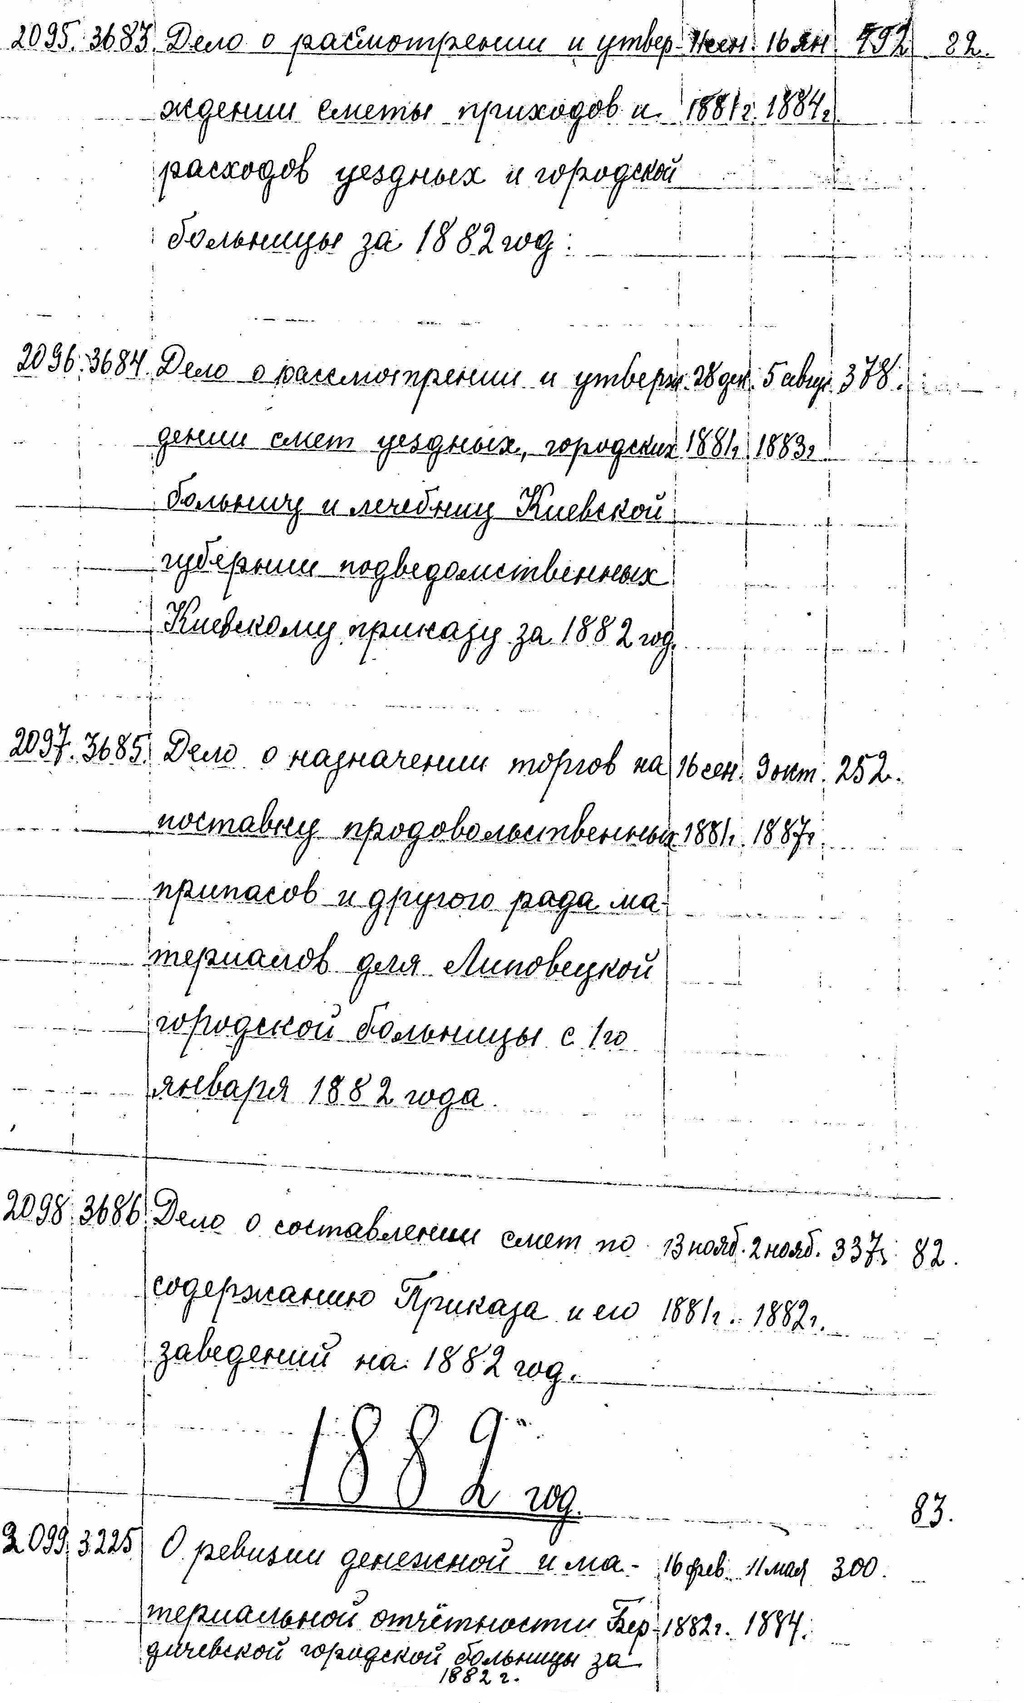 2095. 3683. Дело о расмотрении и утвер- 11 сен. 16 ян 792 82.
ждении сметы приходов и 1881г. 1884г.
расходов уездных и городской
больницы за 1882 год.
2096. 3684. Дело о рассмотрении и утверж- 28 дек. 5 авгус. 378.
дении смет уездных, городских 1881г. 1883г.
больниц и лечебниц Киевской
губернии подведомственных
Киевскому приказу за 1882 год.
2097. 3685. Дело о назначении торгов на 16 сен. 9 окт. 252.
поставку продовольственных 1881г. 1887г.
припасов и другого рада ма-
териалов для Липовецкой
городской больницы с 1го
января 1882 года.
2098. 3686. Дело о составлении смет по 13 нояб. 2 нояб. 337. 82.
содержанию Приказа и его 1881г. 1882г.
заведений на 1882 год.
1882 год.
83.
2099. 3225. О ревизии денежной и ма- 16 фев. 11 мая 300.
териальной отчётности Бер- 1882г. 1884.
дичевской городской больницы за
1882 г.